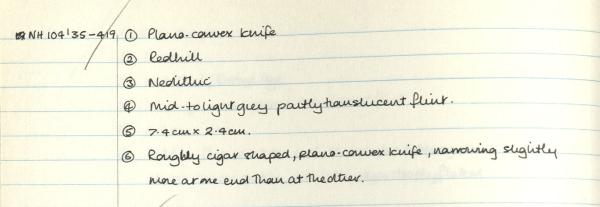 NH 104135-419 ① Plano-convex knife
② Redhill
③ Neolithic
④ Mid-to light grey partly translucent flint.
⑤ 7.4cm x 2.4cm.
⑥ Roughly cigar shaped, plano-convex knife, narrowing slightly
more at one end than at the other.